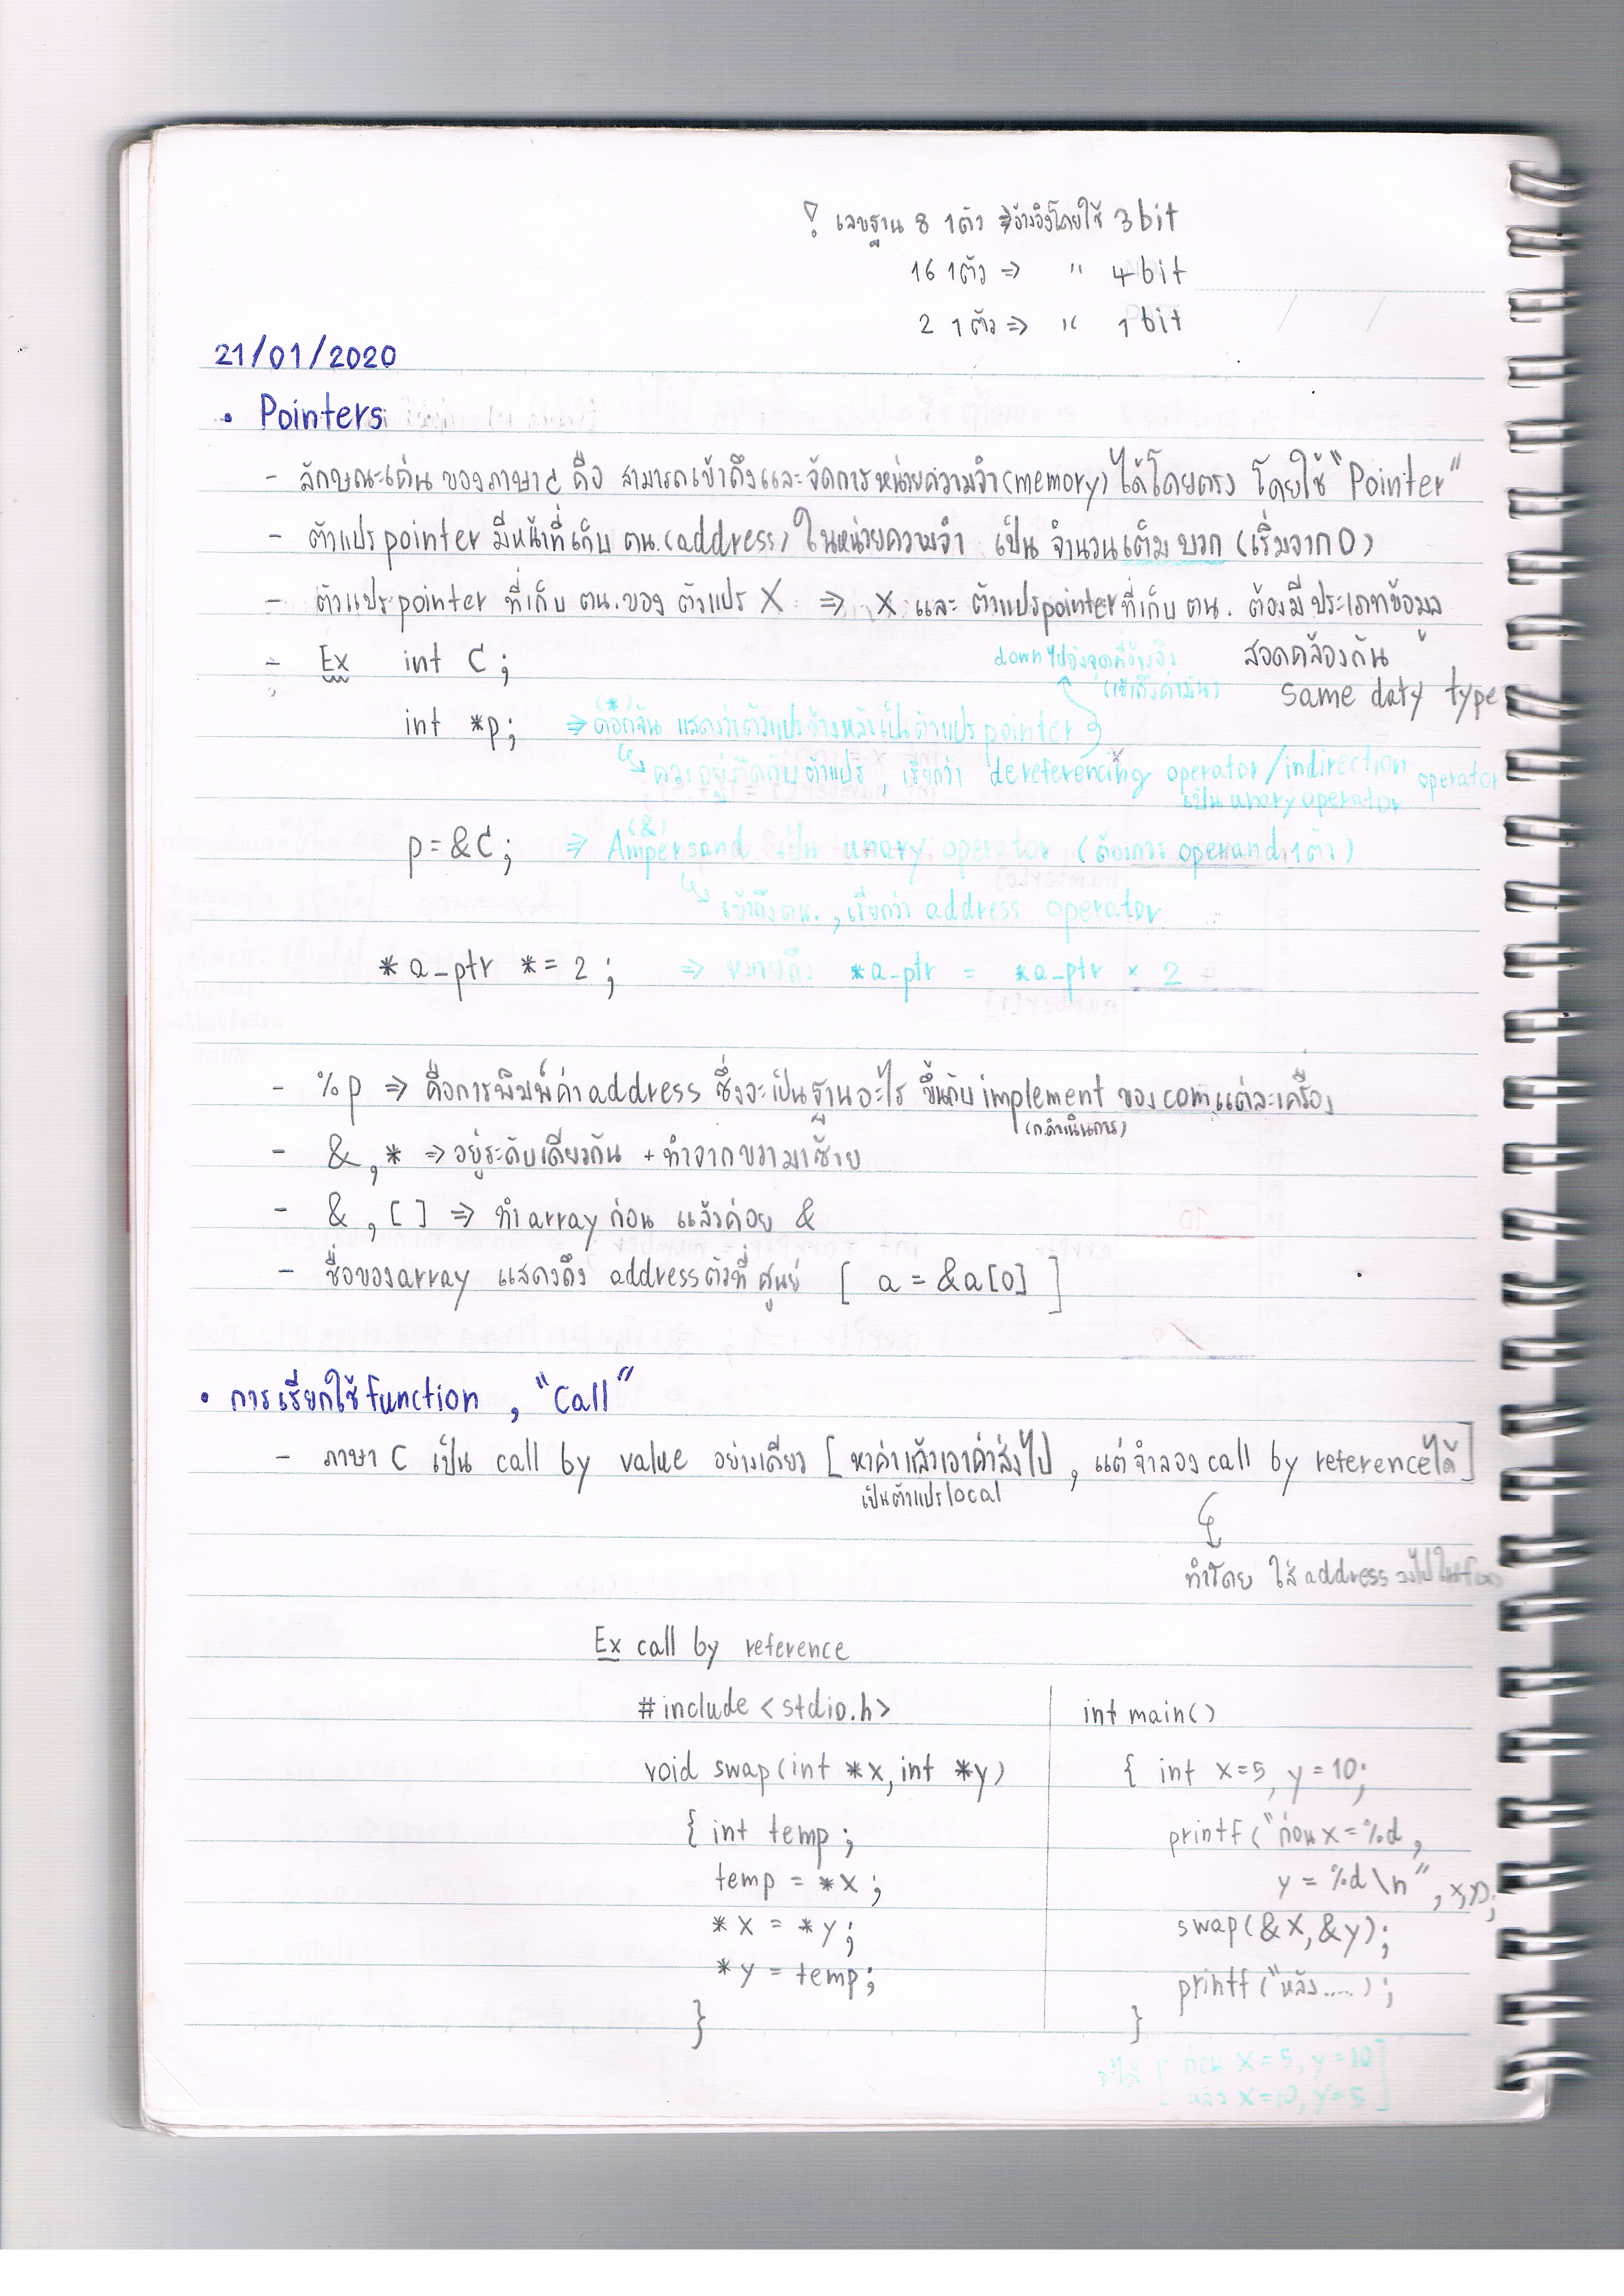 ! เลขฐาน 8 1ตัว ⇒ อ้างอิงโดยใช้ 3bit
16 1ตัว ⇒ " 4bit
2 1ตัว ⇒ " 1bit
21/01/2020
• Pointers
- ลักษณะเด่นของภาษาc คือ สามารถเข้าถึงและจัดการหน่วยความจำ(memory) ได้โดยตรง โดยใช้ "Pointer"
- ตัวแปรpointer มีหน้าที่เก็บ ตน.(address) ในหน่วยความจำ เป็น จำนวนเต็มบวก (เริ่มจาก0)
- ตัวแปรpointer ที่เก็บ ตน.ของ ตัวแปร X ⇒ X และ ตัวแปรpointerที่เก็บ ตน. ต้องมีประเภทข้อมูล
สอดคล้องกัน
same daty type
- Ex int C;
downไปยังจุดที่อ้างอิง
(เข้าถึงค่ามัน)
int *p; ⇒ ดอกจัน (*) แสดงว่าตัวแปรข้างหลังเป็นตัวแปรpointer
↳ ควรอยู่ติดกับตัวแปร, เรียกว่า dereferencing operator/indirection operator
เป็นunary operator
p=&C; ⇒ Ampersand (&) เป็น unary operator (ต้องการ operand 1ตัว)
↳ เข้าถึงตน., เรียกว่า address operator
*a_ptr *= 2; ⇒ หมายถึง *a_ptr = *a_ptr × 2
- %p ⇒ คือการพิมพ์ค่าaddress ซึ่งจะเป็นฐานอะไร ขึ้นกับimplement ของcomแต่ละเครื่อง
(ก.ดำเนินการ)
- &,* ⇒ อยู่ระดับเดียวกัน + ทำจากขวามาซ้าย
- &,[] ⇒ ทำarrayก่อน แล้วค่อย &
- ชื่อของarray แสดงถึง addressตัวที่ศูนย์ [ a = &a[0] ]
• การเรียกใช้function, "Call"
- ภาษา C เป็น call by value อย่างเดียว [หาค่าแล้วเอาค่าส่งไป, แต่จำลองcall by referenceได้]
เป็นตัวแปรlocal
ทำโดย ใส่address ลงไปใน
Ex call by reference
#include <stdio.h>
void swap(int *x,int *y)
{ int temp;
temp = *x;
*x = *y;
*y = temp;
}
int main()
{ int x=5, y=10;
printf("ก่อนx=%d,
y = %d\n", x,y);
swap(&x,&y);
printf("หลัง....);
}
จะได้ [ ก่อน x=5, y=10
หลัง x=10, y=5 ]